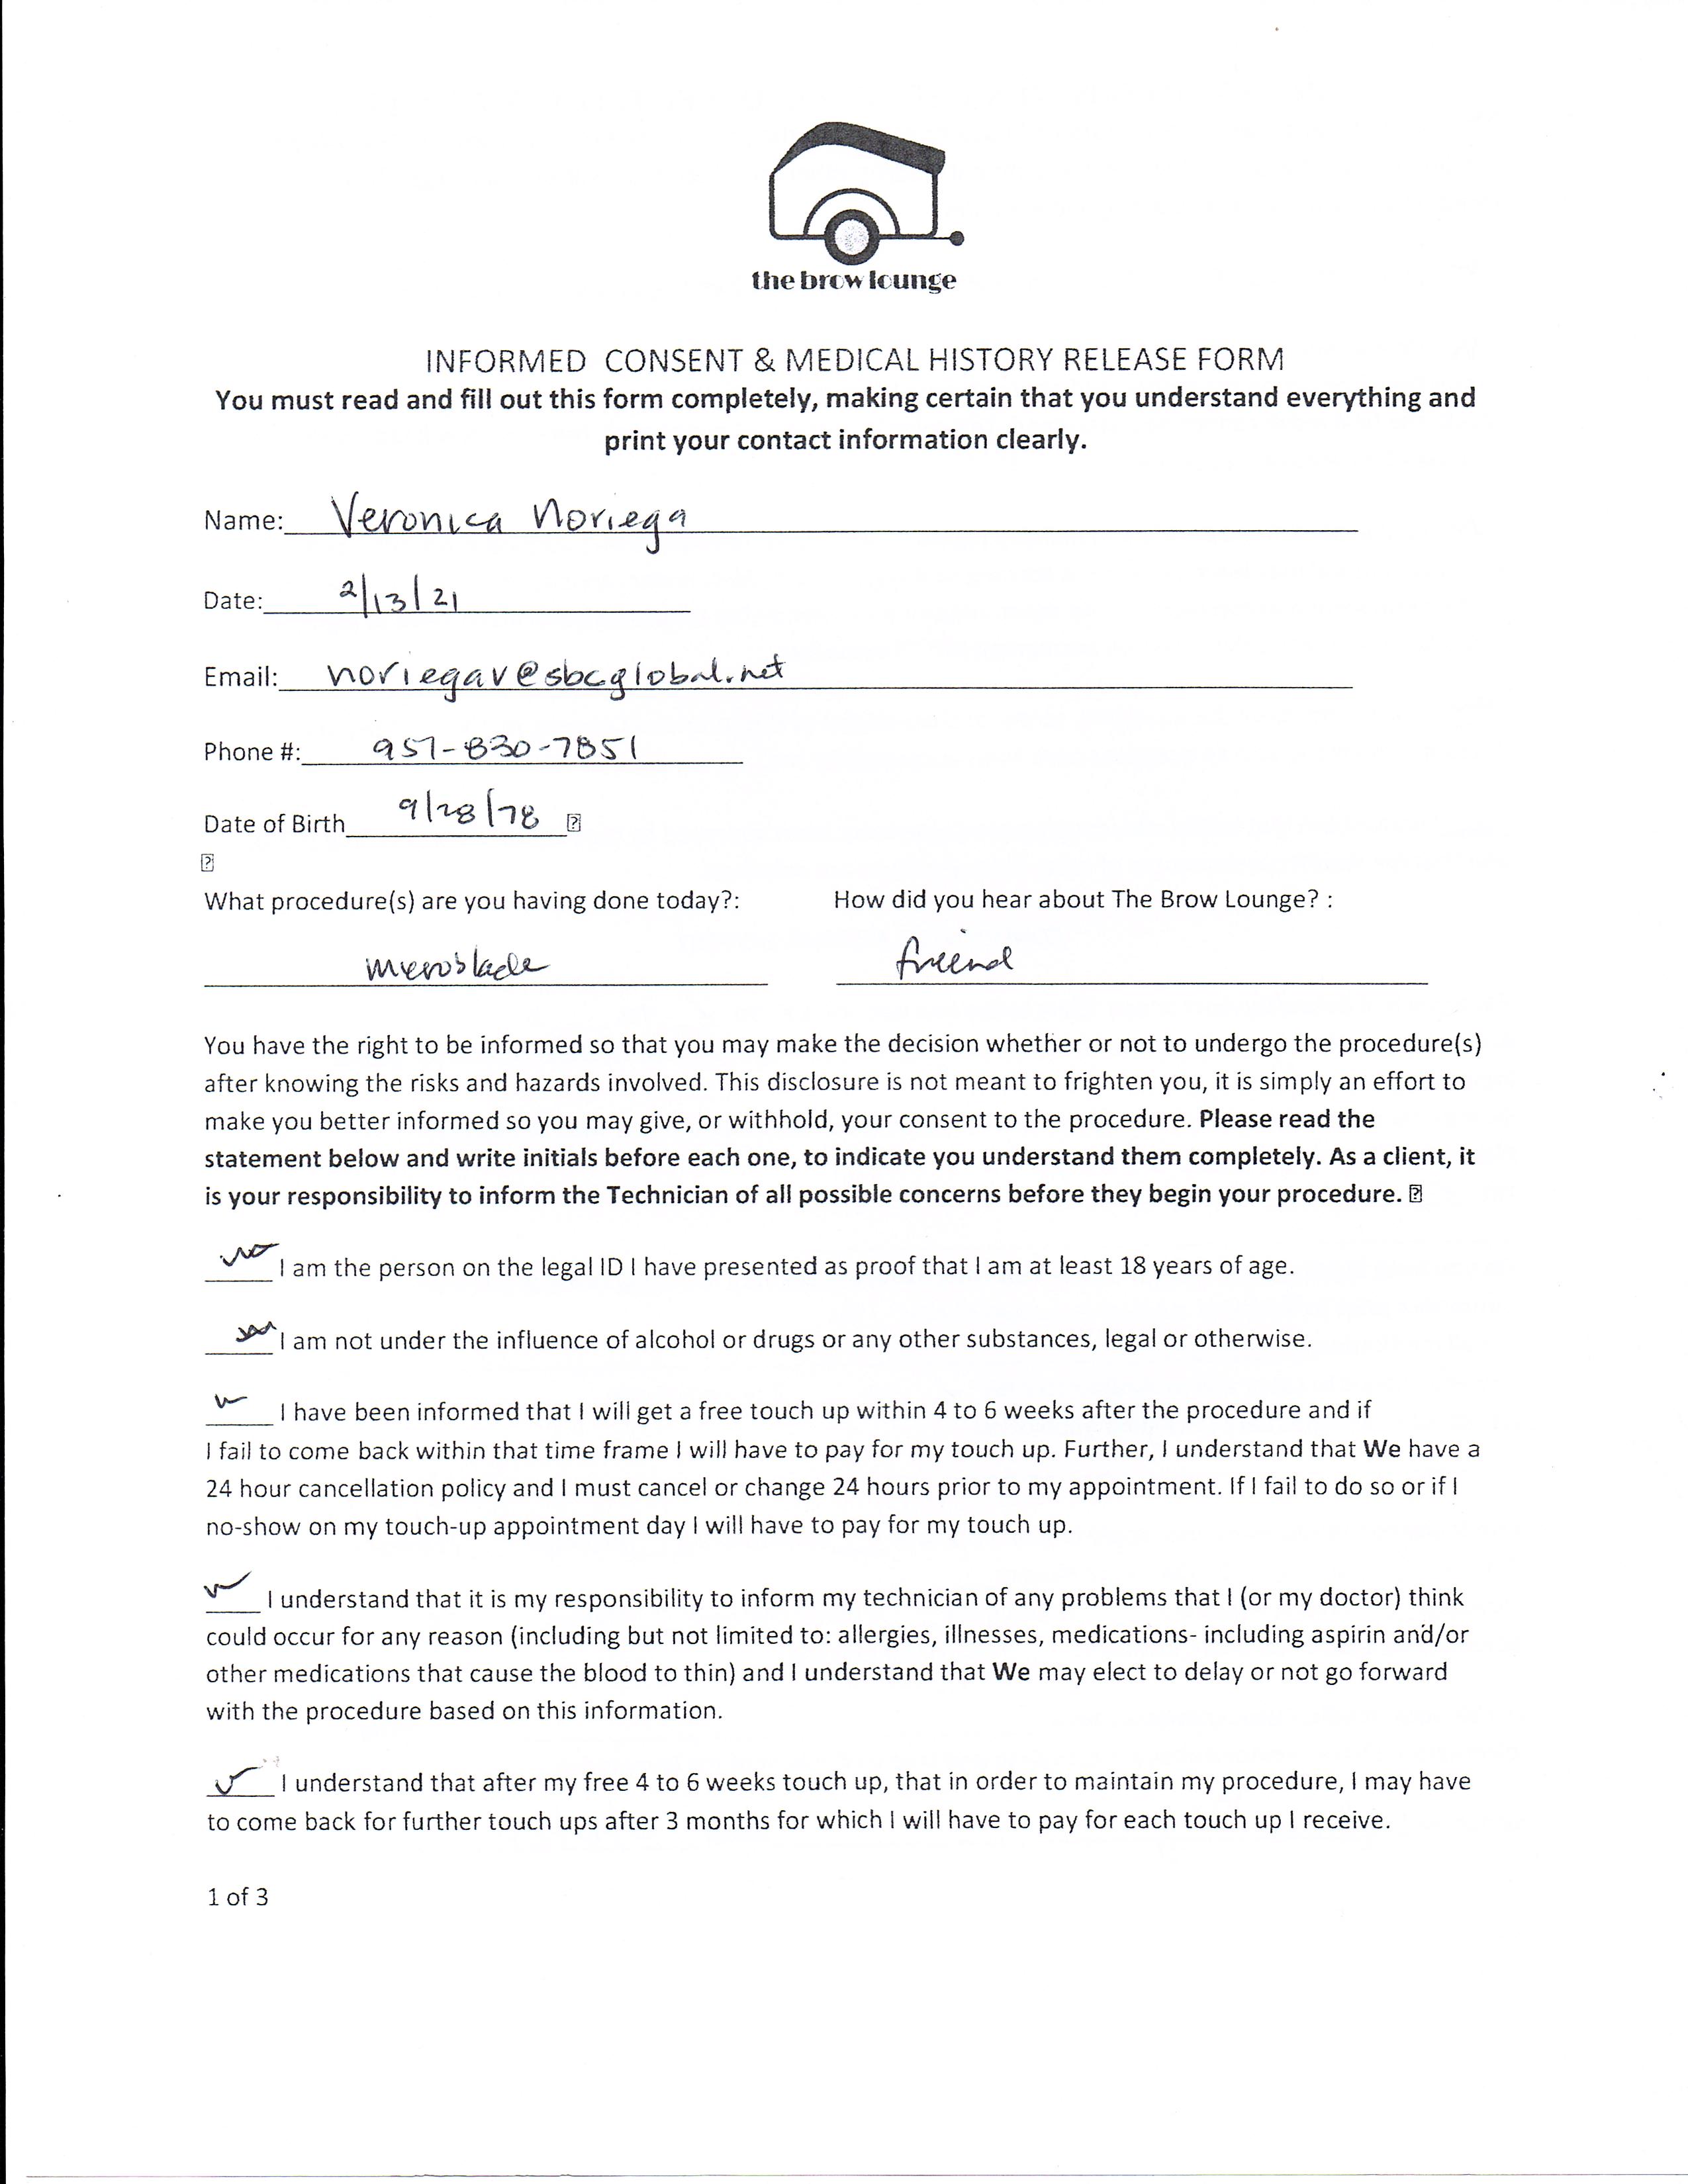 the brow lounge
INFORMED CONSENT & MEDICAL HISTORY RELEASE FORM
You must read and fill out this form completely, making certain that you understand everything and
print your contact information clearly.
Name: Veronica Noriega
Date: 2/13/21
Email: noriegav@sbcglobal.net
Phone #: 951-830-7851
Date of Birth 9/28/78
What procedure(s) are you having done today?: How did you hear about The Brow Lounge? :
microblade friend
You have the right to be informed so that you may make the decision whether or not to undergo the procedure(s)
after knowing the risks and hazards involved. This disclosure is not meant to frighten you, it is simply an effort to
make you better informed so you may give, or withhold, your consent to the procedure. Please read the
statement below and write initials before each one, to indicate you understand them completely. As a client, it
is your responsibility to inform the Technician of all possible concerns before they begin your procedure.
I am the person on the legal ID I have presented as proof that I am at least 18 years of age.
I am not under the influence of alcohol or drugs or any other substances, legal or otherwise.
I have been informed that I will get a free touch up within 4 to 6 weeks after the procedure and if
I fail to come back within that time frame I will have to pay for my touch up. Further, I understand that We have a
24 hour cancellation policy and I must cancel or change 24 hours prior to my appointment. If I fail to do so or if I
no-show on my touch-up appointment day I will have to pay for my touch up.
I understand that it is my responsibility to inform my technician of any problems that I (or my doctor) think
could occur for any reason (including but not limited to: allergies, illnesses, medications- including aspirin and/or
other medications that cause the blood to thin) and I understand that We may elect to delay or not go forward
with the procedure based on this information.
I understand that after my free 4 to 6 weeks touch up, that in order to maintain my procedure, I may have
to come back for further touch ups after 3 months for which I will have to pay for each touch up I receive.
1 of 3